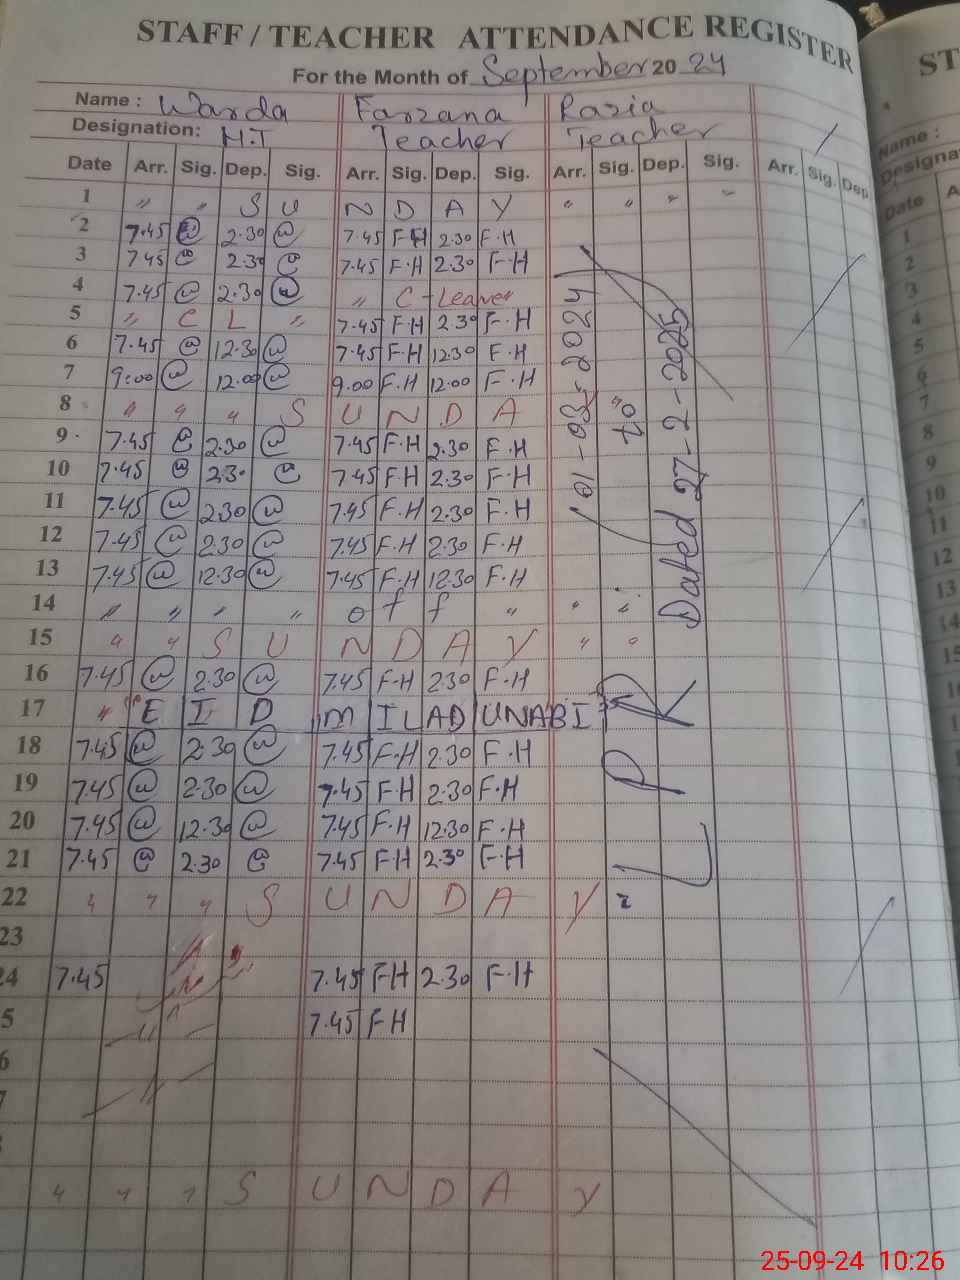 STAFF / TEACHER ATTENDANCE REGISTER
For the Month of September 20 24
Name : Warda Farzana Razia
Designation: H.T Teacher Teacher
Date Arr. Sig. Dep. Sig. Arr. Sig. Dep. Sig. Arr. Sig. Dep. Sig. Arr. Sig. Dep.
1 " " S U N D A Y " " " "
2 7.45 2.30 7.45 F.H 2.30 F.H
3 7.45 2.30 7.45 F.H 2.30 F-H
4 7.45 2.30 " C-Leave
5 " C L " 7.45 F.H 2.30 F.H
6 7.45 12.30 7.45 F.H 12.30 F.H
7 9:00 12.00 9.00 F.H 12.00 F.H
8 " " " S U N D A
9 7.45 2.30 7.45 F.H 2.30 F.H
10 7.45 2.30 7.45 F.H 2.30 F.H
11 7.45 2.30 7.45 F.H 2.30 F.H
12 7.45 2.30 7.45 F.H 2.30 F.H
13 7.45 12.30 7.45 F.H 12.30 F.H
14 " " " " o f f " " "
15 " " S U N D A Y " "
16 7.45 2.30 7.45 F.H 2.30 F.H
17 " E I D M I LAD UNABI
18 7.45 2.30 7.45 F.H 2.30 F.H
19 7.45 2.30 7.45 F.H 2.30 F.H
20 7.45 12.30 7.45 F.H 12.30 F.H
21 7.45 2.30 7.45 F.H 2.30 F.H
22 " " " S U N D A Y
23
4 7.45 7.45 F-H 2.30 F.H
5 7.45 F-H
6
7
" " " S U N D A Y
(01-03-2024)
to
Dated 27-2-2025
ST
Name :
Designa
Date A
1
2
3
4
5
6
7
8
9
10
11
12
13
14
15
25-09-24 10:26